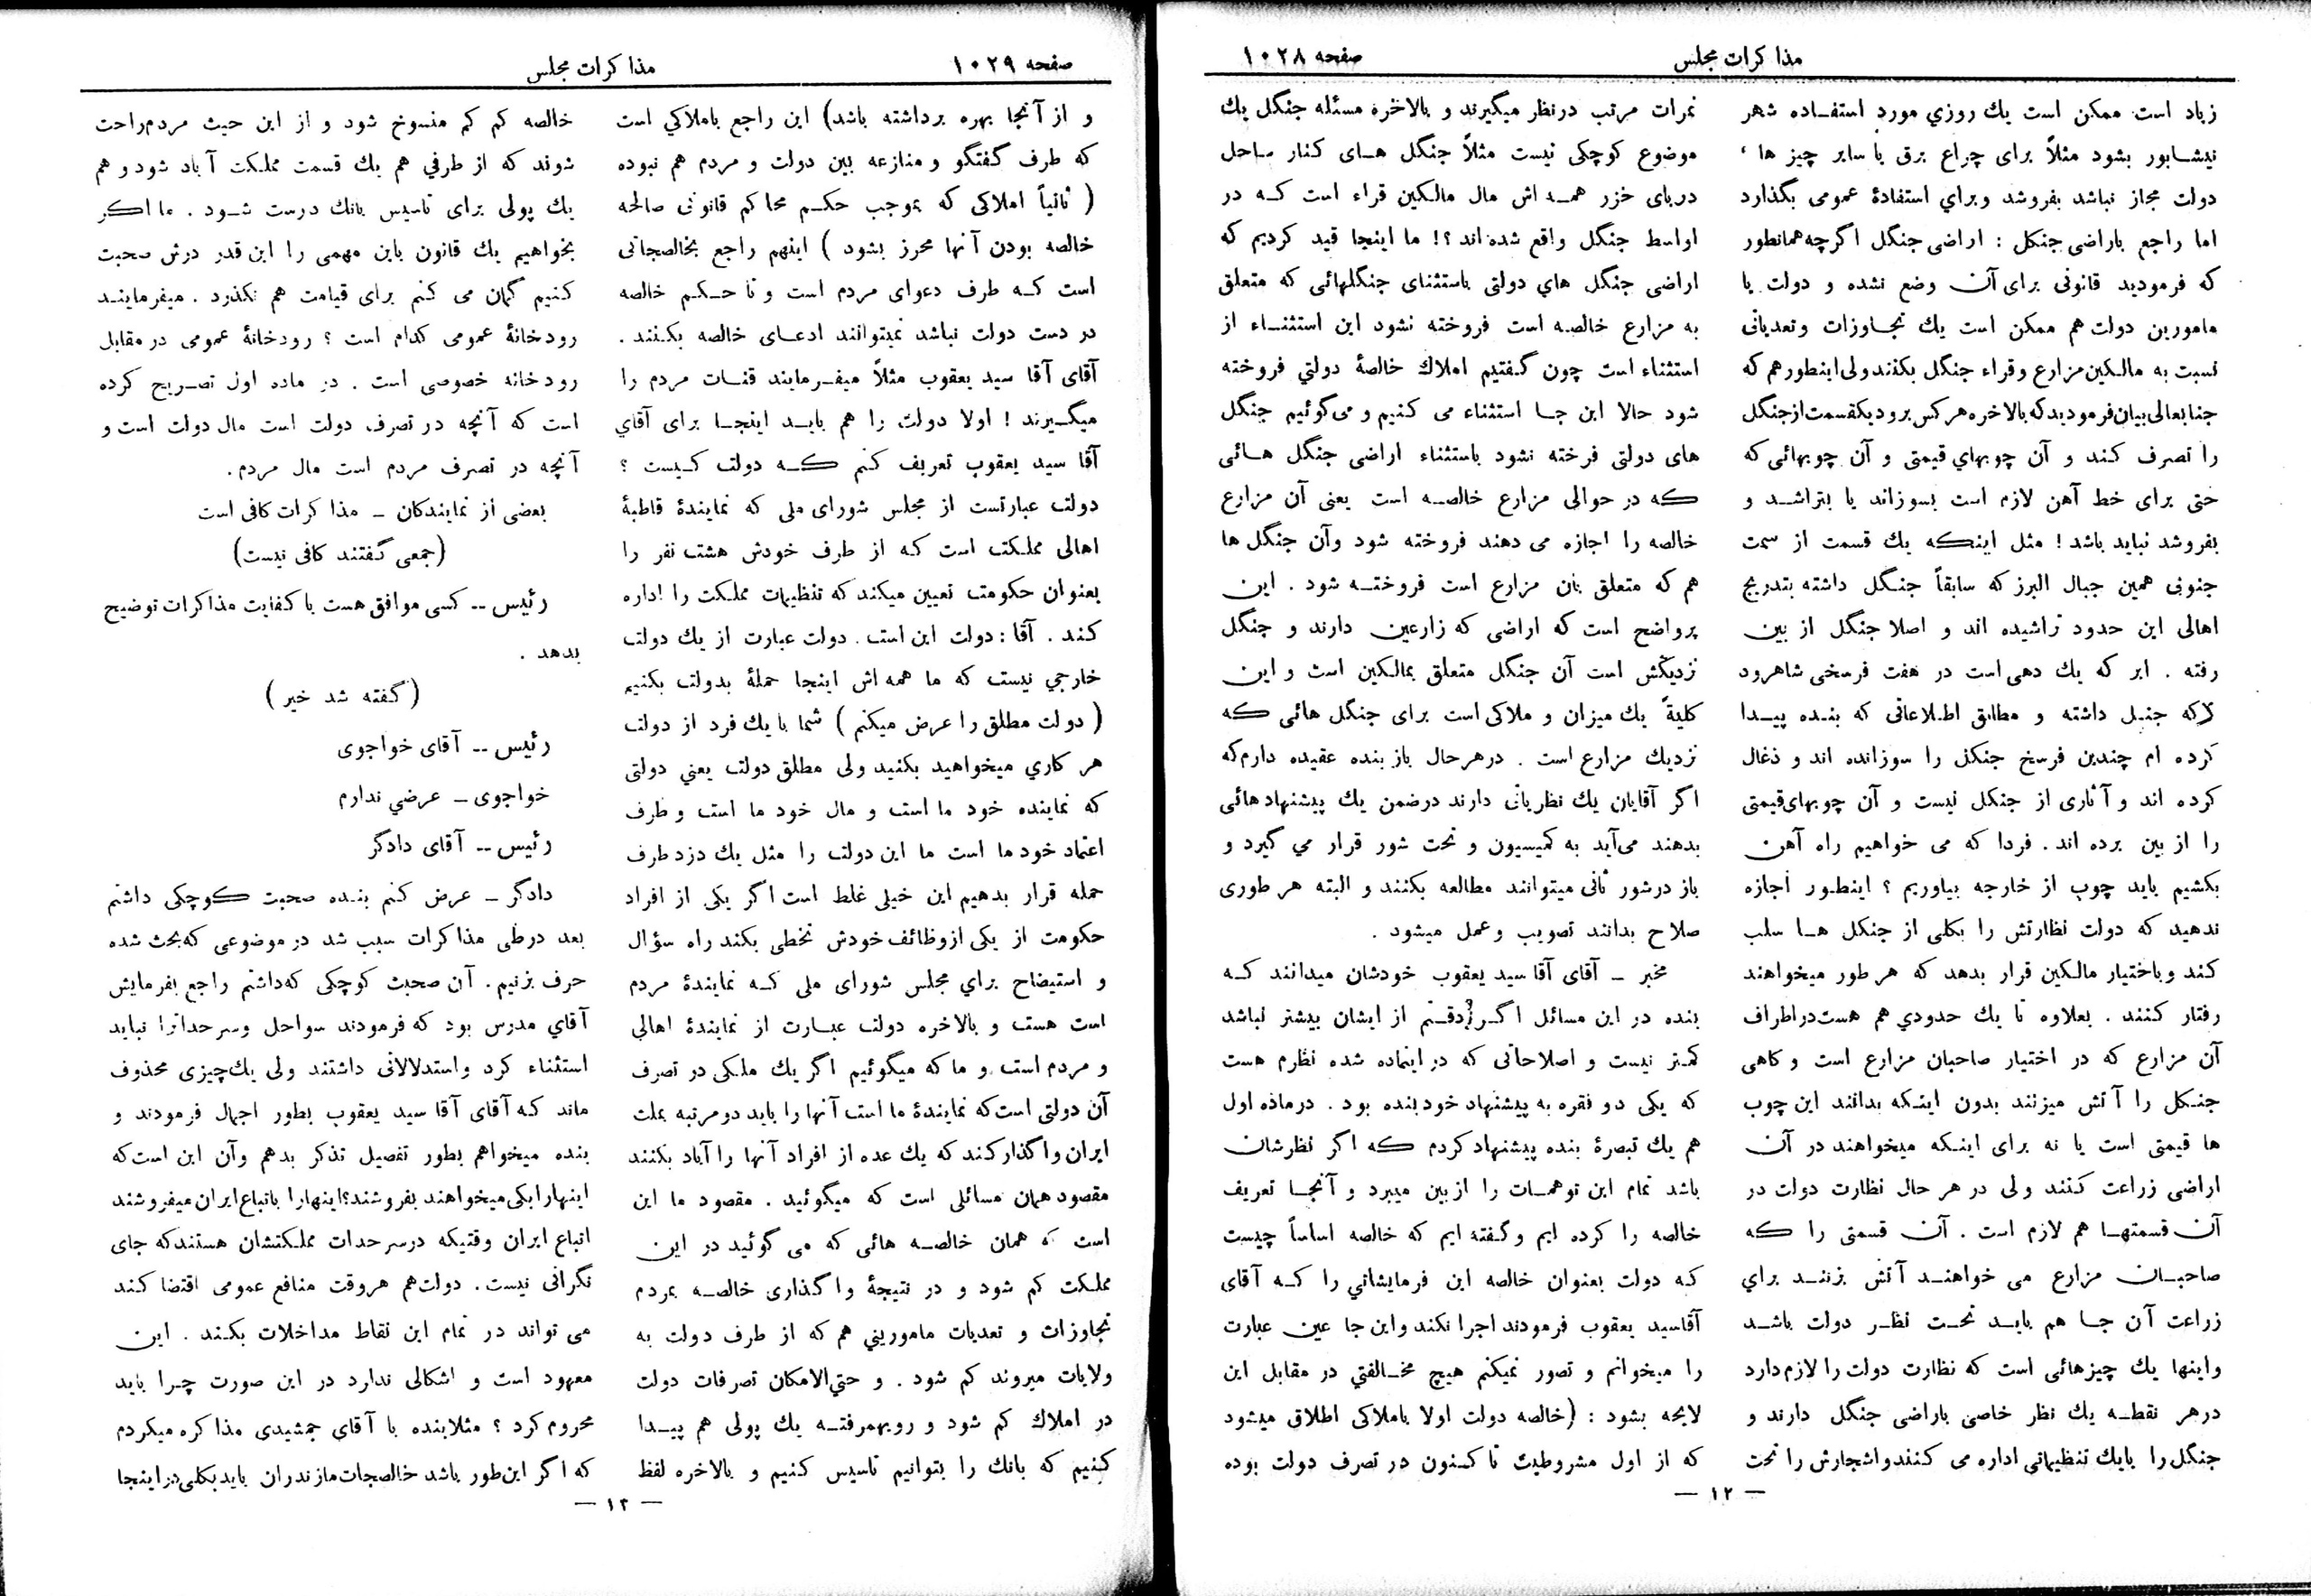 صفحه ۱۰۲۸
مذاکرات مجلس
زیاد است ممکن است یك روزي مورد استفـاده شهر
نیشـابور بشود مثلاً برای چراغ برق یا سایر چیز ها ،
دولت مجاز نباشد بفروشد وبراي استفادهٔ عمومی بگذارد
اما راجع باراضی جنکل : اراضی جنگل اگرچه همانطور
که فرمودید قانونی برای آن وضع نشده و دولت یا
مامورین دولت هم ممکن است یك تجـاوزات وتعدیاتی
نسبت به مالکین مزارع وقراء جنگل بکنند ولی اینطورهم که
جنابعالی بیان فرمودید که بالاخره هرکس برود یکقسمت از جنگل
را تصرف کند و آن چوبهاي قیمتی و آن چوبهائی که
حتی برای خط آهن لازم است بسوزاند یا بتراشـد و
بفروشد نباید باشد ! مثل اینکه یك قسمت از سمت
جنوبی همین جبال البرز که سابقاً جنـگل داشته بتدریج
اهالی این حدود تراشیده اند و اصلا جنگل از بین
رفته . ابر که یك دهی است در هفت فرسخی شاهرود
لاکه جنبل داشته و مطابق اطلاعاتی که بنـده پیـدا
کرده ام چندین فرسخ جنکل را سوزانده اند و ذغال
کرده اند و آثاری از جنکل نیست و آن چوبهای قیمتی
را از بین برده اند . فردا که می خواهیم راه آهن
بکشیم باید چوب از خارجه بیاوریم ؟ اینطـور اجازه
ندهید که دولت نظارتش را بکلی از جنکل هـا سلب
کند وباختیار مالکین قرار بدهد که هر طور میخواهند
رفتار کنند . بعلاوه تا یك حدودي هم هست در اطراف
آن مزارع که در اختیار صاحبان مزارع است وکاهی
جنـکل را آتش میزنند بدون اینـکه بدانند این چوب
ها قیمتی است یا نه برای اینـکه میخواهند در آن
اراضی زراعت کنند ولی در هر حال نظارت دولت در
آن قسمتهـا هم لازم است . آن قسمتی را که
صاحبـان مزارع می خواهنـد آتش بزننـد براي
زراعت آن جـا هم بایـد تحـت نظـر دولت باشـد
واینها یك چیزهائی است که نظارت دولت را لازم دارد
درهر نقطـه یك نظر خاصی باراضی جنگل دارند و
جنگل را بایك تنظیماتي اداره می کنند واشجارش را تحت
نمرات مرتب درنظر میگیرند و بالاخره مسئله جنگل یك
موضوع کوچکی نیست مثلاً جنگل هـای کنار ساحل
دریای خزر همـه اش مال مالکین قراء است کـه در
اواسط جنگل واقع شده اند ؟! ما اینجا قید کردیم که
اراضی جنگل هاي دولتی باستثنای جنگلهائی که متعلق
به مزارع خالصه است فروخته نشود این استثنـاء از
استثناء است چون گفتیم املاك خالصهٔ دولتي فروخته
شود حالا این جـا استثناء می کنیم و می گوئیم جنگل
های دولتی فرخته نشود باستثناء اراضی جنگل هـائی
که در حوالی مزارع خالصـه است یعنی آن مزارع
خالصه را اجازه می دهند فروخته شود وآن جنگل ها
هم که متعلق بآن مزارع است فروختـه شود . این
پرواضح است که اراضی که زارعین دارند و جنگل
نزدیکش است آن جنگل متعلق بمالکین است و این
کلیةً یك میزان و ملاکی است برای جنگل هائی که
نزدیك مزارع است . درهرحال باز بنده عقیده دارم که
اگر آقایان یك نظریاتی دارند درضمن یك پیشنهادهائی
بدهند می آید به کمیسیون و تحت شور قرار مي گیرد و
باز درشور ثانی میتوانند مطالعه بکنند و البته هر طوری
صلاح بدانند تصویب وعمل میشود .
مخبر ـ آقای آقا سید یعقوب خودشان میدانند کـه
بنده در این مسائل اگـر دقتـم از ایشان بیشتر نباشد
کمتر نیست و اصلاحاتی که در اینماده شده نظرم هست
که یکی دو فقره به پیشنهاد خود بنده بود . درماده اول
هم یك تبصرهٔ بنده پیشنهاد کردم که اگر نظرشان
باشد تمام این توهمـات را از بین میبرد و آنجـا تعریف
خالصه را کرده ایم وگفته ایم که خالصه اساساً چیست
کـه دولت بعنوان خالصه این فرمایشاتي را کـه آقای
آقاسید یعقوب فرمودند اجرا نکند واین جا عین عبارت
را میخوانم و تصور نمیکنم هیچ مخـالفتي در مقابل این
لایحه بشود : (خالصه دولت اولا باملاکی اطلاق میشود
که از اول مشروطیت تا کنون در تصرف دولت بوده
— ۱۲ —
صفحه ۱۰۲۹
مذاکرات مجلس
و از آنجا بهره برداشته باشد) این راجع باملاکي است
که طرف گفتگو و منازعه بین دولت و مردم هم نبوده
( ثانیاً املاکی که بموجب حکـم محاکم قانونی صالحه
خالصه بودن آنها محرز بشود ) اینهم راجع بخالصجاتی
است کـه طرف دعوای مردم است و تا حـکـم خالصه
در دست دولت نباشد نمیتوانند ادعـای خالصه بکنند .
آقای آقا سید یعقوب مثلاً میفـرمایند قنـات مردم را
میگـیرند ! اولا دولت را هم بایـد اینجـا برای آقاي
آقا سید یعقوب تعریف کنم کـه دولت کـیست ؟
دولت عبارتست از مجلس شورای ملی که نمایندهٔ قاطبهٔ
اهالی مملـکت است کـه از طرف خودش هشت نفر را
بعنوان حکومت تعیین میکند که تنظیمات مملـکت را اداره
کـند . آقا : دولت این است . دولت عبارت از یك دولت
خارجي نیست که ما همه اش اینجا حملهٔ بدولت بکنیم
( دولت مطلق را عرض میکنم ) شما با یك فرد از دولت
هر کاري میخواهید بکنید ولی مطلق دولت یعني دولتی
که نماینده خود ما است و مال خود ما است و طرف
اعتماد خود ما است ما این دولت را مثل یك دزد طرف
حمله قرار بدهیم این خیلی غلط است اگر یکی از افراد
حکومت از یکی از وظائف خودش تخطی بکند راه سؤال
و استیضاح براي مجلس شورای ملی کـه نمایندهٔ مردم
است هست و بالاخره دولت عبـارت از نمایندهٔ اهالي
و مردم است و ما که میگوئیم اگر یك ملـکی در تصرف
آن دولتی است که نمایندهٔ ما است آنها را باید دو مرتبه بملت
ایران واگذار کـند که یك عده از افراد آنها را آباد بکنند
مقصود همان مسائلی است که میگوئید . مقصود ما این
است که همان خالصـه هائی که می گوئید در این
مملـکت کم شود و در نتیجهٔ واگذاری خالصـه بمردم
تجاوزات و تعدیات مامورینی هم که از طرف دولت به
ولایات میروند کم شود . و حتي الامکان تصرفات دولت
در املاك کم شود و رویهمرفتـه یك پولی هم پیـدا
کنیم که بانك را بتوانیم تاسیس کنیم و بالاخره لفظ
خالصه کم کم منسوخ شود و از این حیث مردم راحت
شوند که از طرفي هم یك قسمت مملـکت آباد شود و هم
یك پولی برای تاسیس بانك درست شـود . ما اکر
بخواهیم یك قانون باین مهمی را این قدر درش صحبت
کـنیم گمان می کنم برای قیامت هم نکذرد . میفرماینـد
رودخانهٔ عمومی کدام است ؟ رودخانهٔ عمومی در مقابل
رودخانه خصوصی است . در ماده اول تصـریح کرده
است که آنچه در تصرف دولت است مال دولت است و
آنچه در تصرف مردم است مال مردم .
بعضی از نمایندکان ـ مذاکرات کافی است
(جمعی گفتند کافی نیست)
رئیس ــ کسی موافق هست با کفایت مذاکرات توضیح
بدهد .
( گفته شد خیر )
رئیس ــ آقای خواجوی
خواجوی ـ عرضي ندارم
رئیس ــ آقای دادگر
دادگر ـ عرض کنم بنـده صحبت کوچکی داشتم
بعد در طی مذاکرات سبب شد در موضوعی که بحث شده
حرف بزنیم . آن صحبت کوچکی که داشتم راجع بفرمایش
آقاي مدرس بود که فرمودند سواحل وسرحدات را نباید
استثناء کرد واستدلالاتی داشتند ولی یك چیزی محذوف
ماند کـه آقای آقا سید یعقوب بطور اجمال فرمودند و
بنده میخواهم بطور تفصیل تذکر بدهم وآن این است که
اینها را بکی میخواهند بفروشند؟ اینها را باتباع ایران میفروشند
اتباع ایران وقتیکه در سرحدات مملـکتشان هستند که جای
نگرانی نیست . دولت هم هروقت منافع عمومی اقتضا کـند
می تواند در تمام این نقاط مداخلات بکـند . این
معهود است و اشکالی ندارد در این صورت چـرا باید
محروم کرد ؟ مثلا بنده با آقای جمشیدی مذاکره میکردم
که اگر این طور باشد خالصجات مازندران باید بکلی در اینجا
— ۱۲ —